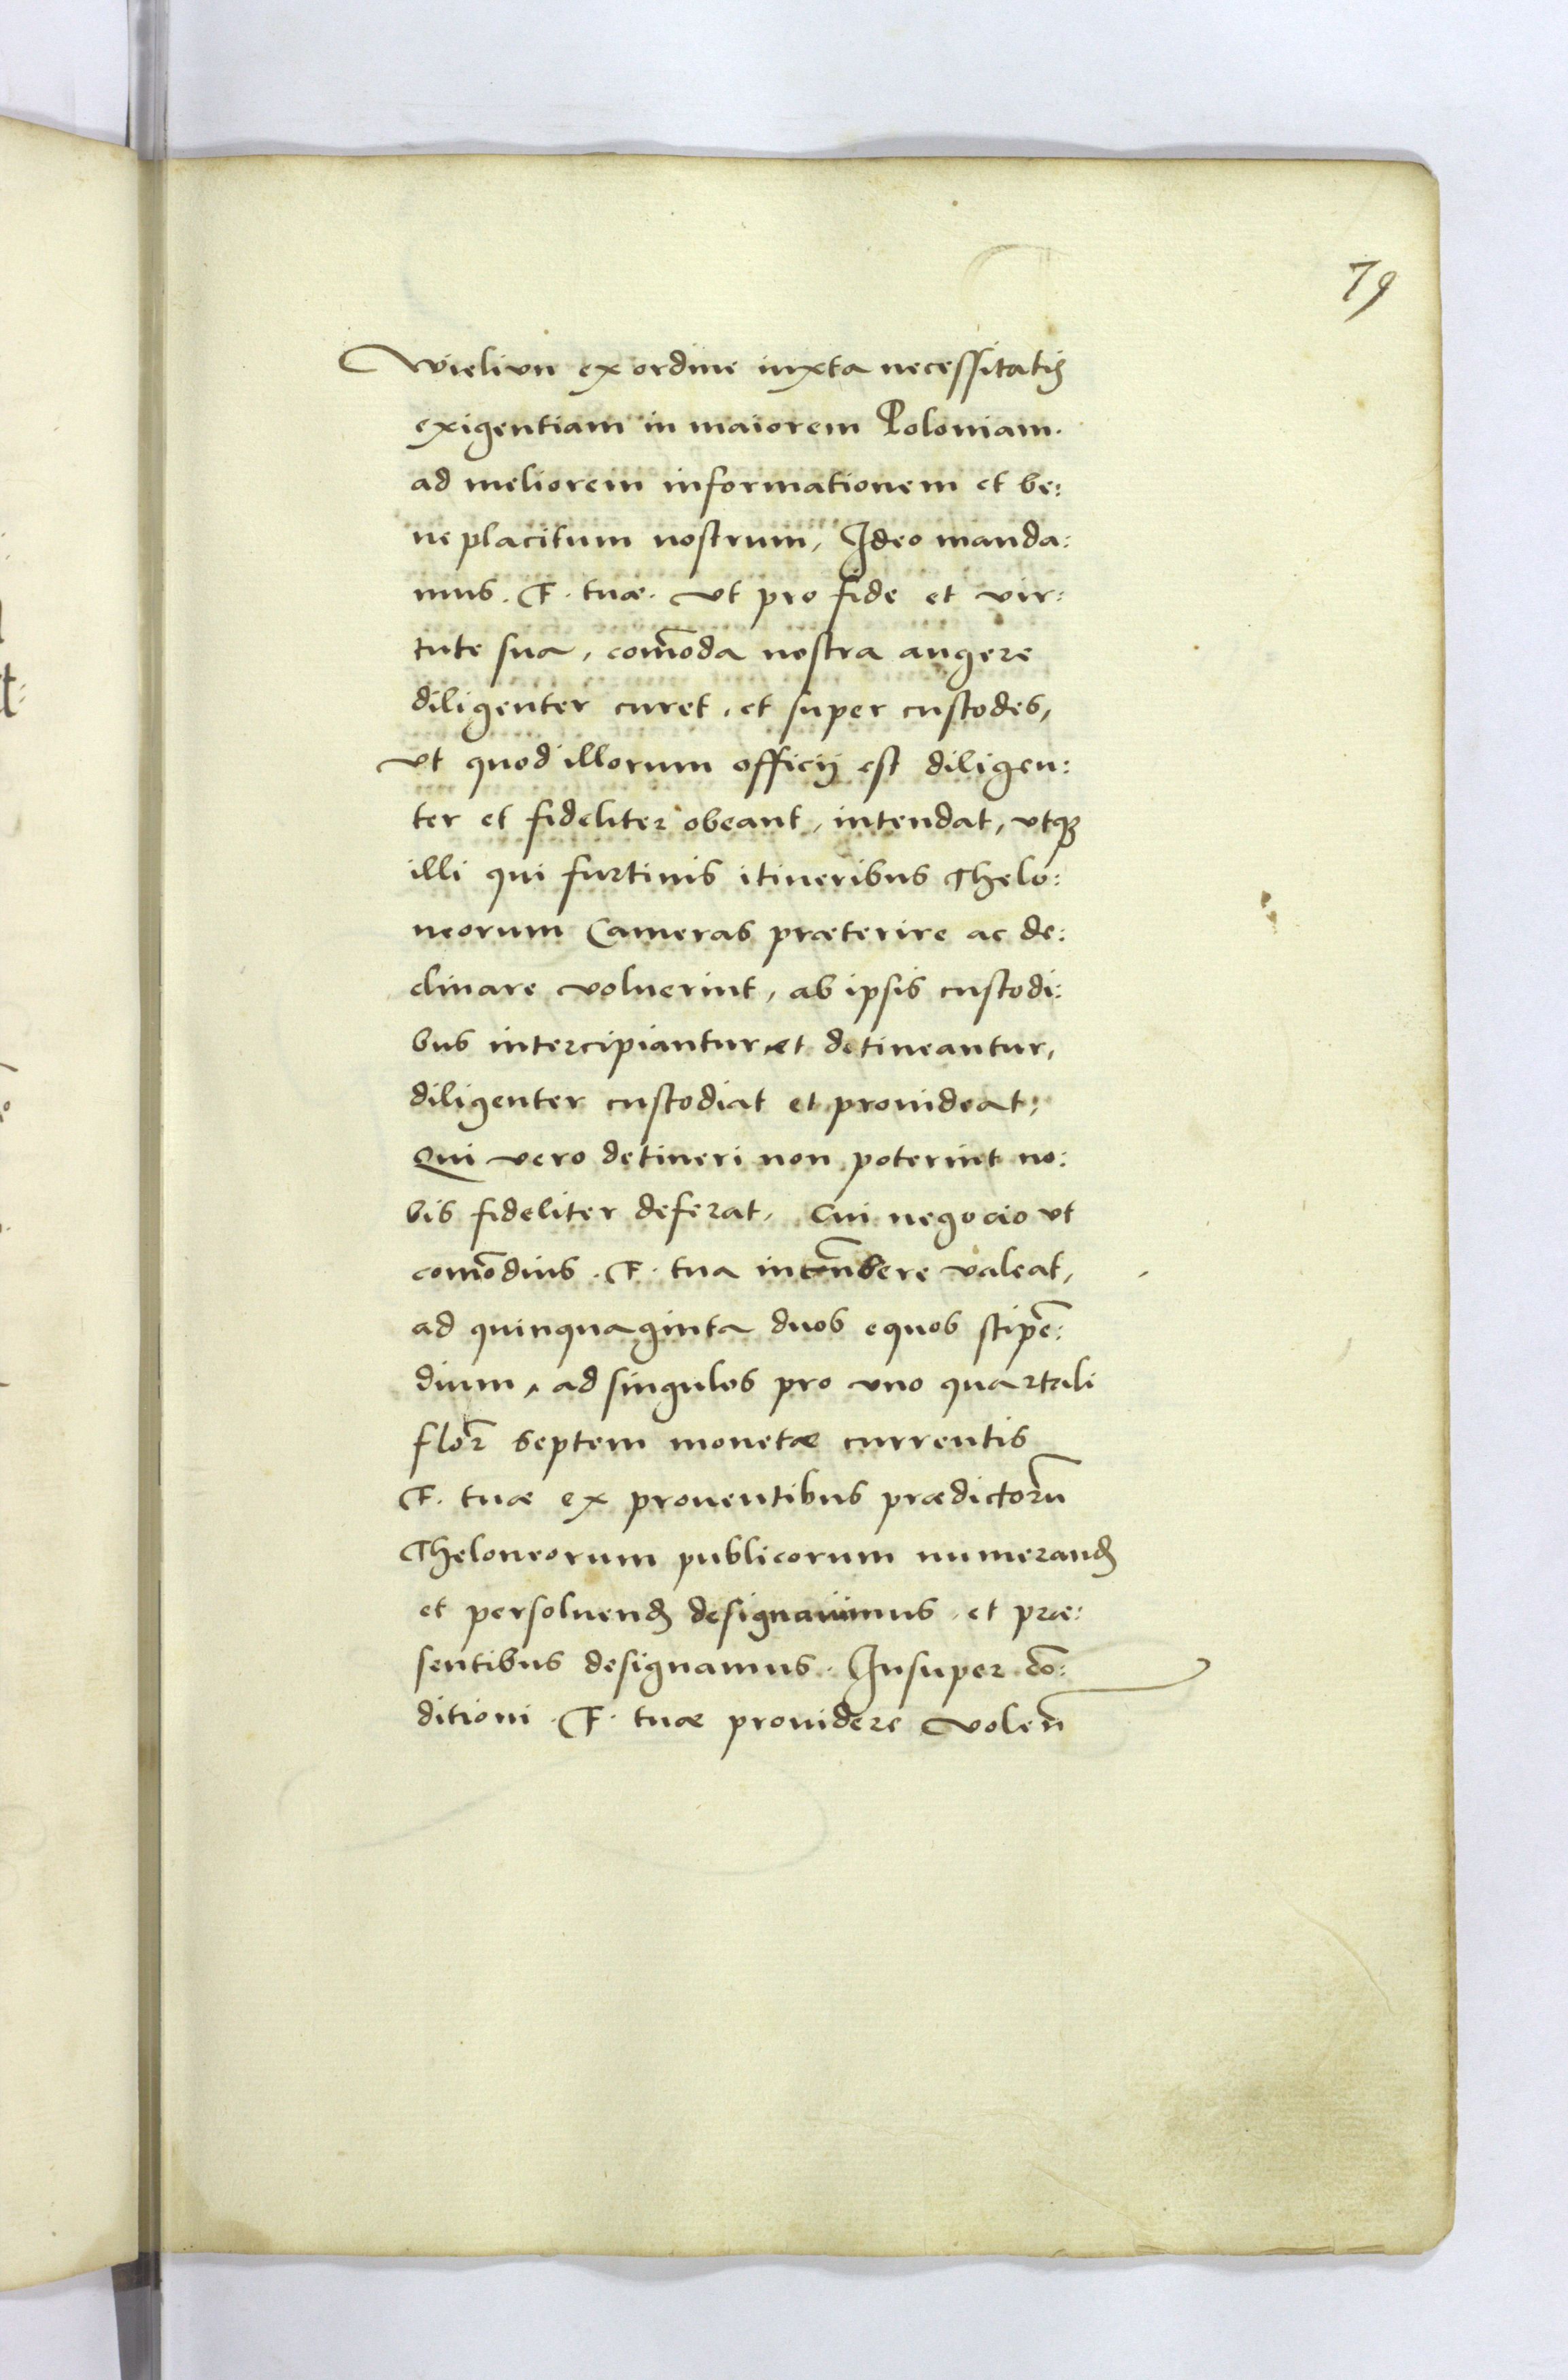 79
Wielivn ex ordine iuxta necessitatis
exigentiam in maiorem Poloniam.
ad meliorem informationem et be:
ne placitum nostrum, Ideo manda:
mus. F. tuæ. vt pro fide et vir:
tute sua, com̄oda nostra augere
diligenter curet, et super custodes,
vt quod illorum officij est diligen:
ter et fideliter obeant, intendat, vtqꝫ
illi qui furtiuis itineribus Thelo:
neorum Cameras præterire ac de:
clinare voluerint, ab ipsis custodi:
bus intercipiantur et detineantur,
diligenter custodiat et prouideat:
Qui vero detineri non poterint no:
bis fideliter deferat, Cui negocio vt
com̄odius. F. tua valeat,
ad quinquaginta duos equos stipē:
dium, ad singulos pro vno quartali
flor̄ septem monetæ currentis
F. tuæ ex prouentibus prædictorū
Theloneorum publicorum numerand̄
et persoluend̄ designauimus, et præ:
sentibus designamus. Insuper cō:
ditioni. F. tuæ prouidere volen̄